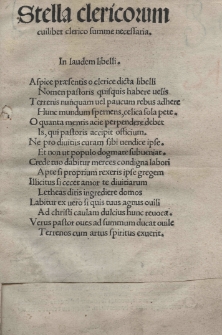 Stella clericorum
cuilibet clerico summe necessaria.
In laudem libelli.
Aspice præsentis o clerice dicta libelli
Nomen pastoris quisquis habere uelis
Terrenis nunquam uel paucam rebus adhere
Hunc mundum spernens, celica sola pete.
O quanta mentis acie perpendere debet
Is, qui pastoris accipit officium.
Ne pro diuitiis curam sibi uendicet ipse.
Et non ut populo dogmate subueniat.
Crede mihi dabitur merces condigna labori
Apte si proprium rexeris ipse gregem
Illicitus si cecet amor te diuitiarum
Letheas ditis ingrediere domos
Labitur ex uero si quis tuus agnus ouili
Ad christi caulam dulcius hunc reuoca.
Verus pastor oues ad summum ducat ouile
Terrenos cum artus spiritus exuerit.